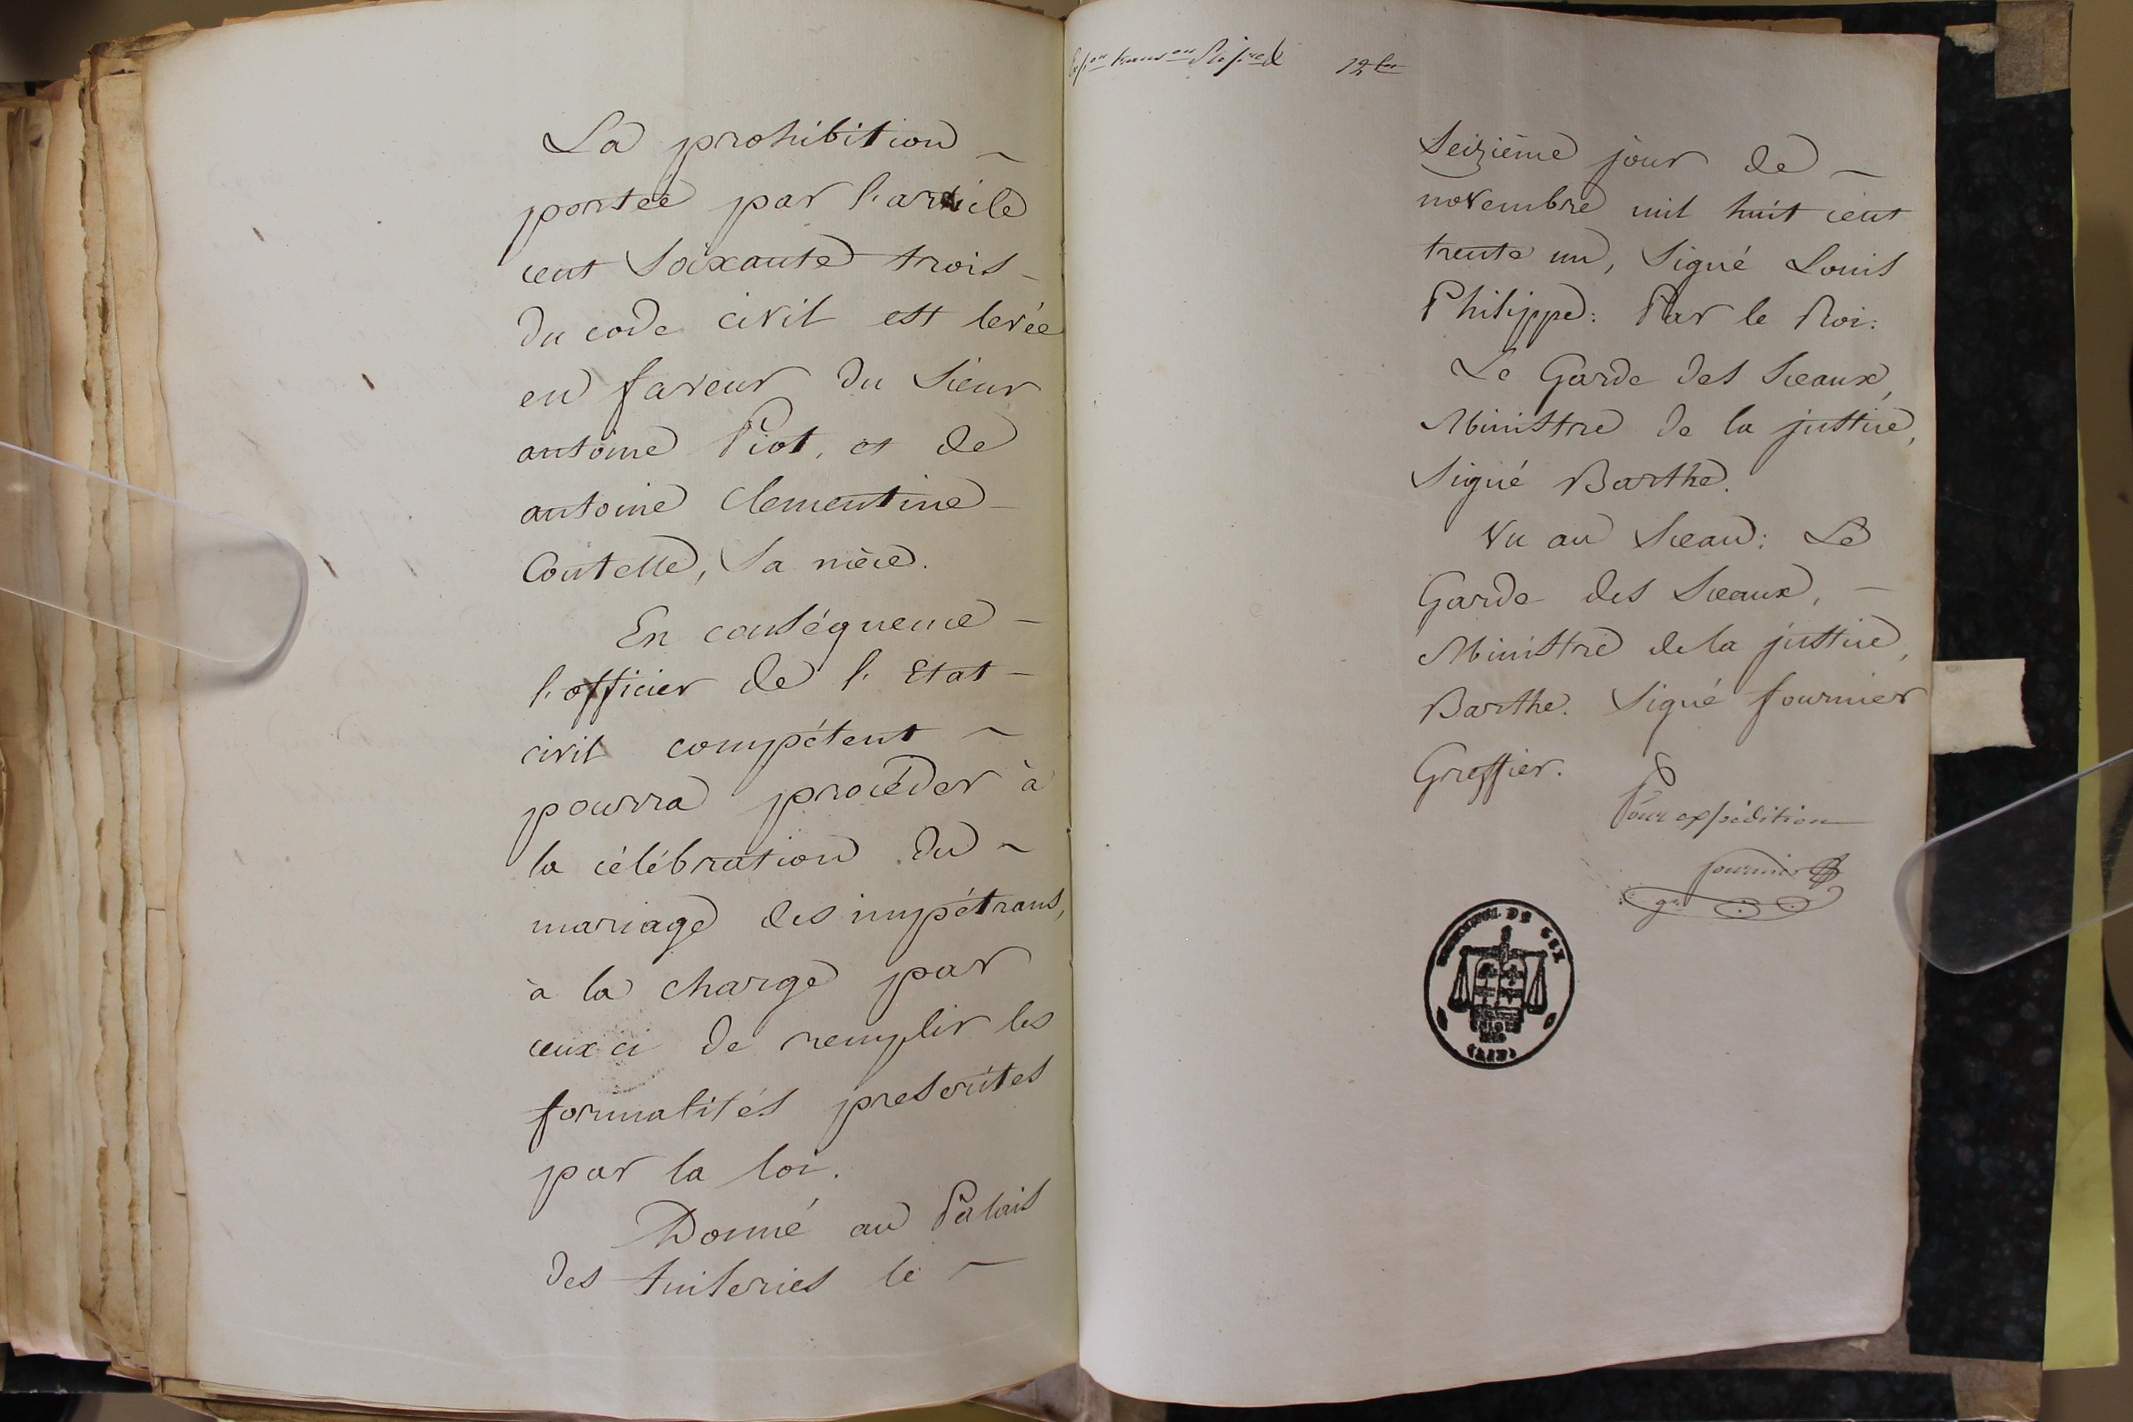 La prohibition
portée par l'article
cent soixante trois
du code civil est levée
en faveur du Sieur
antoine Piot, et de
antoine Clementine
Coutelle, sa nièce.
En conséquence
l'officier de l'Etat
civil compétent
pourra procéder à
la célébration du
mariage des impétrans,
à la charge par
ceux ci de remplir les
formalités prescrites
par la loi.
Donné au Palais
des tuileries le
Seizième jour de
novembre mil huit cent
trente un, Signé Louis
Philippe: Par le Roi:
Le Garde des Sceaux,
Ministre de la justice,
Signé Barthe.
Vu au Sceau: Le
Garde des Sceaux,
Ministre de la justice,
Barthe. Signé fournier
Greffier.
Pour expédition
fournier
gr
DE GEX
(AIN)